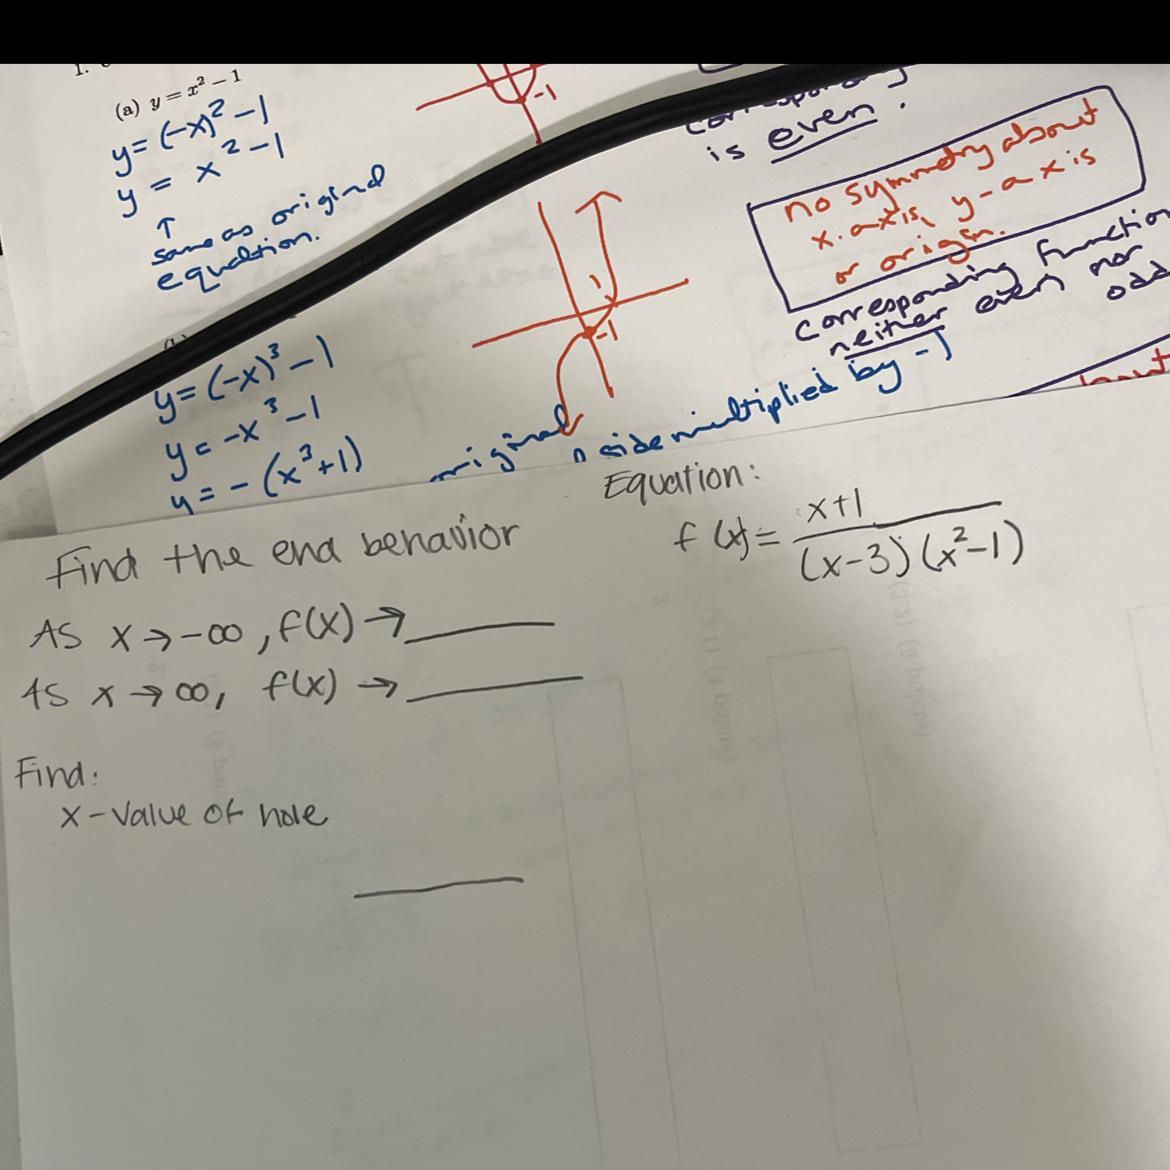 1.
(a) y = x² − 1
y = (-x)² - 1
y = x² - 1
↑
same as original
equation.
-1
is even.
no symmetry about
x-axis, y-axis
or origin.
corresponding function
neither even nor
odd
1
-1
y = (-x)³ - 1
y = -x³ - 1
y = -(x³+1)
original side multiplied by -1
Find the end behavior
AS x → -∞, f(x) → ____
AS x → ∞, f(x) → ____
Find:
x-value of hole
____
Equation:
f(x) = x+1 / (x-3)(x²-1)